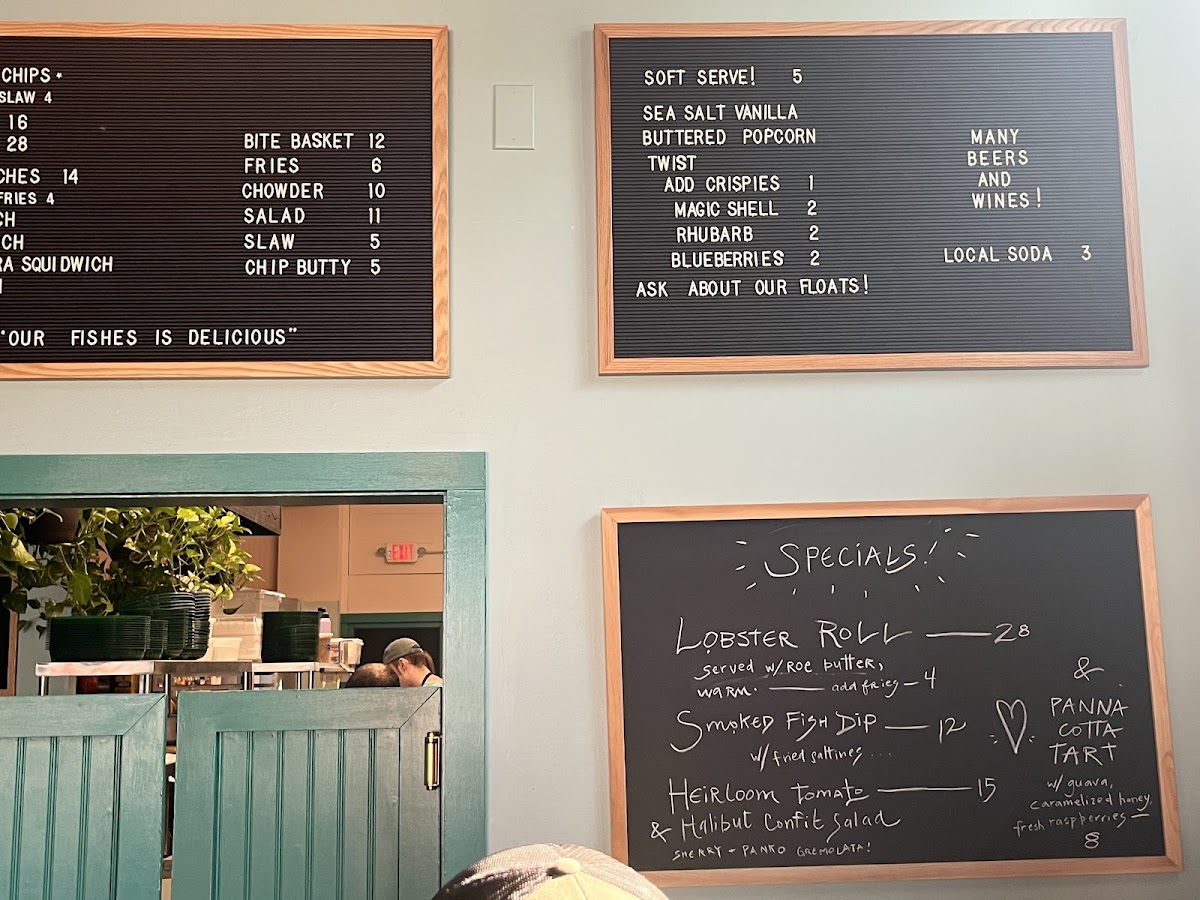 CHIPS *
SLAW 4
16
28
CHES 14
FRIES 4
CH
CH
RA SQUIDWICH
BITE BASKET 12
FRIES 6
CHOWDER 10
SALAD 11
SLAW 5
CHIP BUTTY 5
"OUR FISHES IS DELICIOUS"
SOFT SERVE! 5
SEA SALT VANILLA
BUTTERED POPCORN
TWIST
ADD CRISPIES 1
MAGIC SHELL 2
RHUBARB 2
BLUEBERRIES 2
ASK ABOUT OUR FLOATS!
MANY
BEERS
AND
WINES!
LOCAL SODA 3
EXIT
SPECIALS!
LOBSTER ROLL — 28
served w/ROE butter,
warm. — add fries — 4
SMOKED FISH DIP — 12
w/ fried saltines ...
HEIRLOOM TOMATO — 15
& Halibut Confit Salad
SHERRY - PANKO GREMOLATA!
&
PANNA
COTTA
TART
w/ guava,
caramelized honey,
fresh raspberries —
8